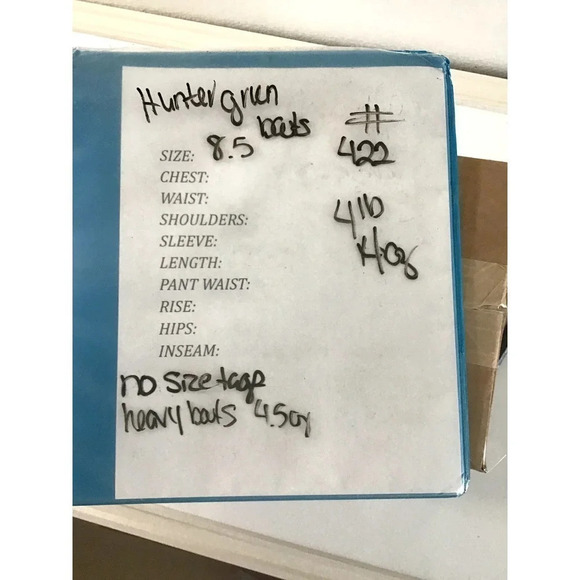 Hunter green
boots
#
SIZE: 8.5
422
CHEST:
WAIST:
SHOULDERS:
4lb
SLEEVE:
LENGTH:
PANT WAIST:
RISE:
HIPS:
INSEAM:
no size tage
heavy boots